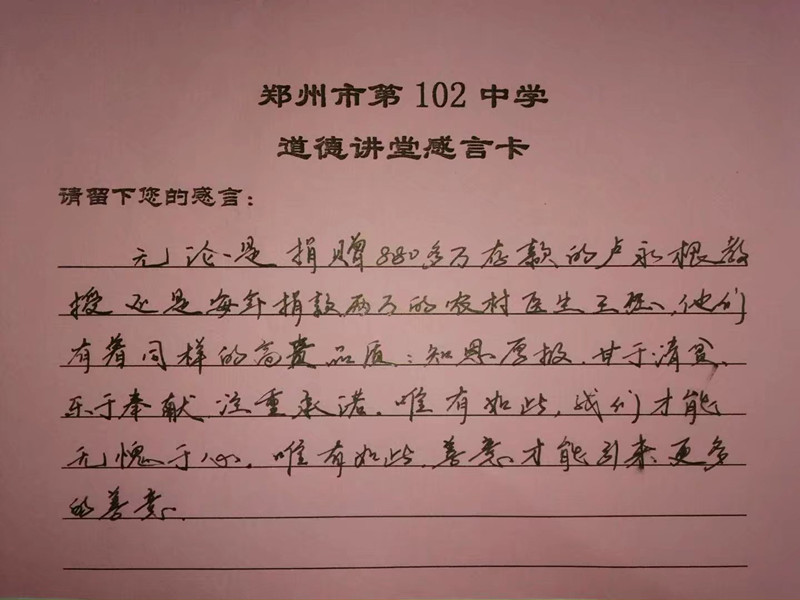 郑州市第 102 中学
道德讲堂感言卡
请留下您的感言：
无论是捐赠880多万存款的卢永根教
授还是每年捐款两万的农村医生王，他们
有着同样的高贵品质：知恩厚报，甘于清贫、
乐于奉献，注重承诺。唯有如此，我们才能
无愧于心。唯有如此，善意才能引来更多
的善意。